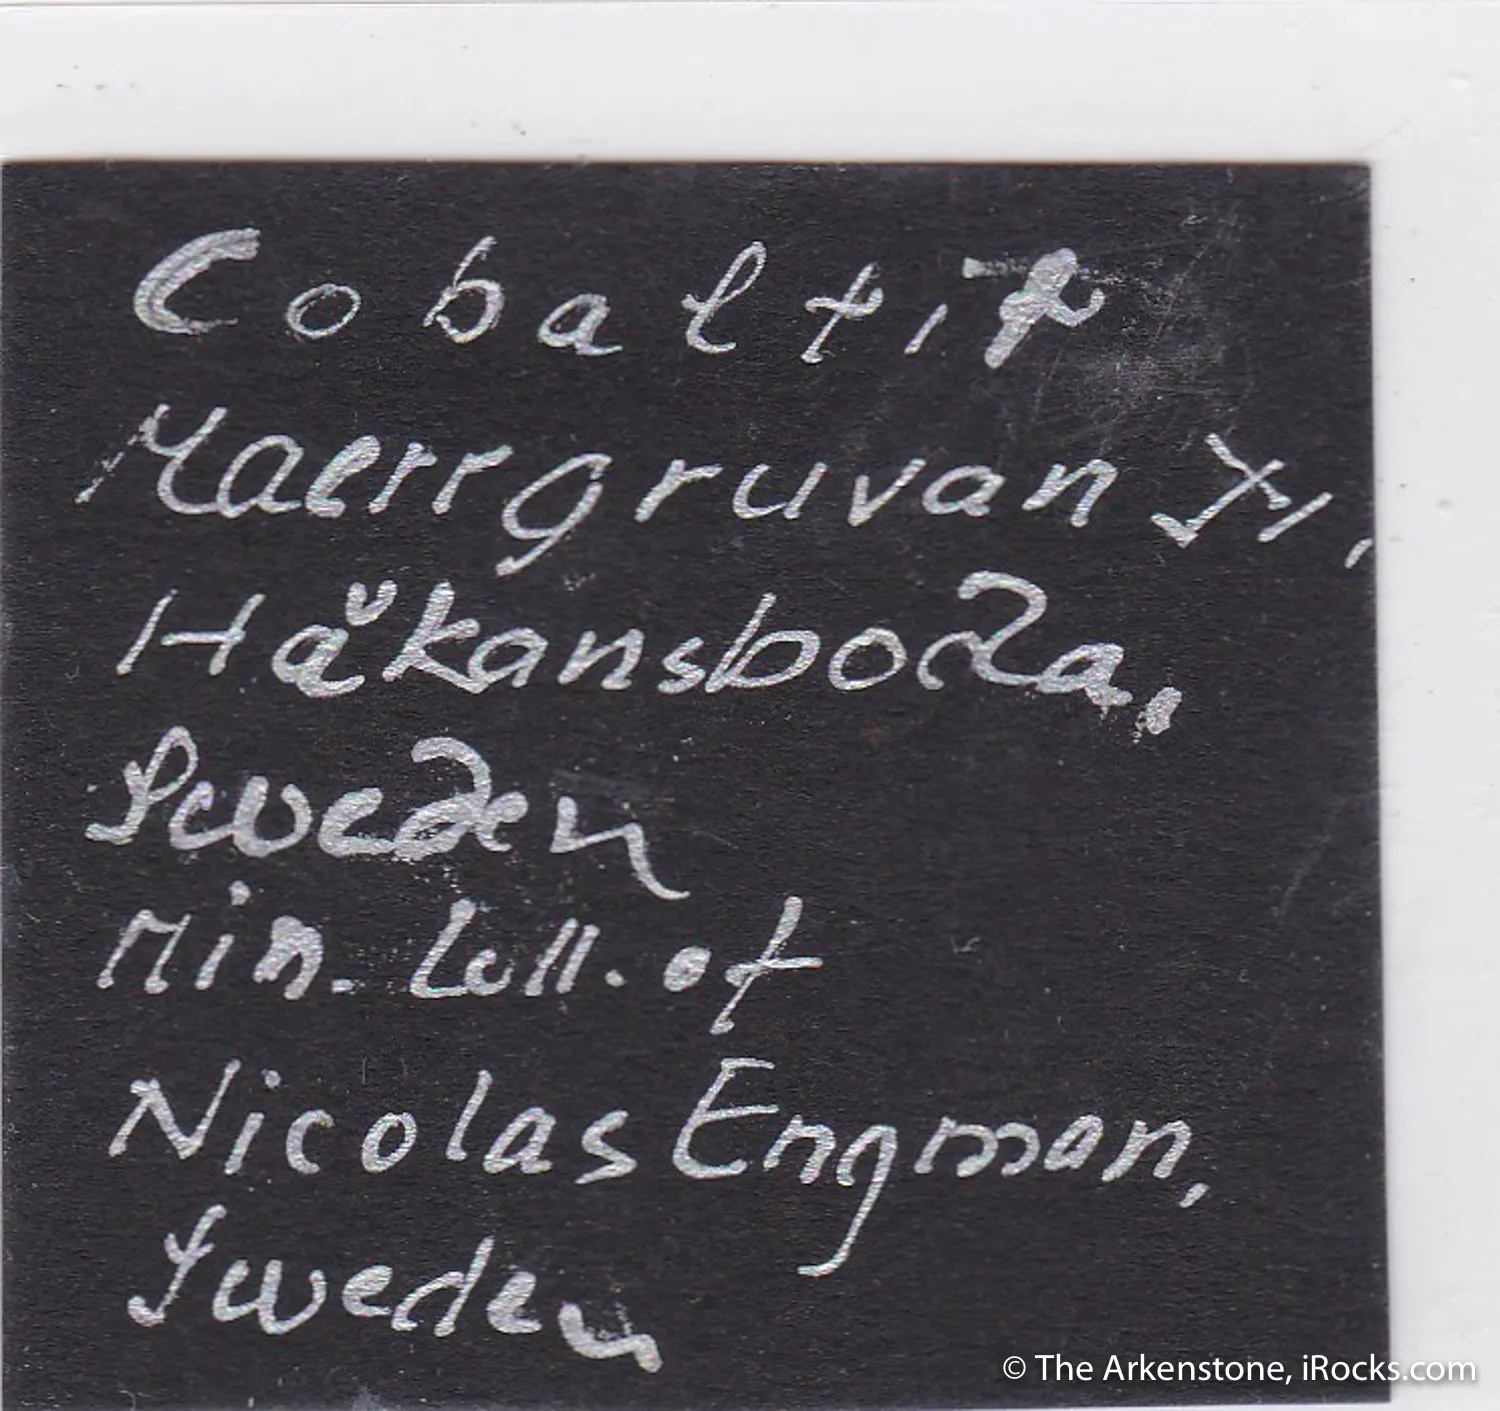 Cobaltit
Maerrgruvan
Håkansboda,
Sweden
Min. Coll. of
Nicolas Engman,
Sweden
© The Arkenstone, iRocks.com